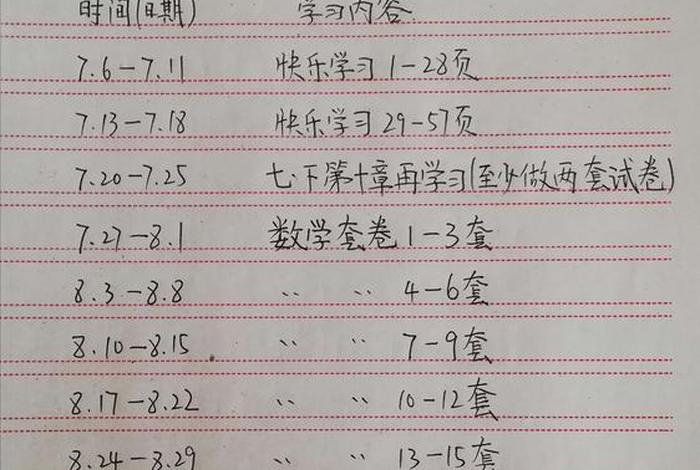 时间(日期) 学习内容
7.6-7.11 快乐学习 1-28页
7.13-7.18 快乐学习 29-57页
7.20-7.25 七.下第十章再学习(至少做两套试卷)
7.27-8.1 数学套卷 1-3套
8.3-8.8 〃 〃 4-6套
8.10-8.15 〃 〃 7-9套
8.17-8.22 〃 〃 10-12套
8.24-8.29 〃 〃 13-15套